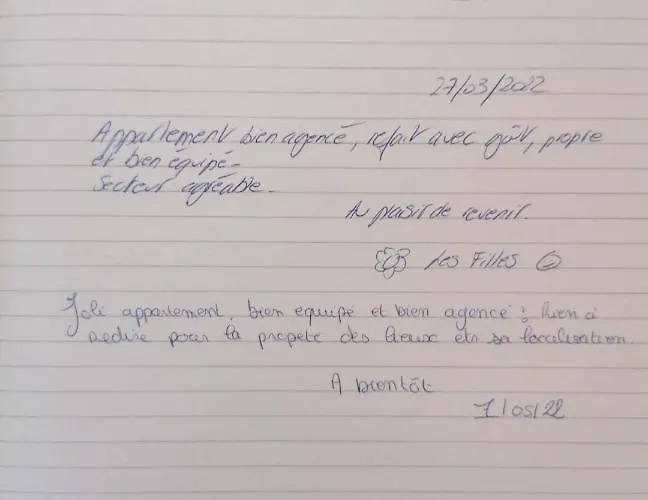 27/03/2022
Appartement bien agencé, refait avec goût, propre
et bien équipé.
Secteur agréable.
Au plaisir de revenir.
Les Filles
Joli appartement, bien equipé et bien agencé; Rien à
redire pour la propeté des lieux et sa localisation.
A bientôt
1/05/22